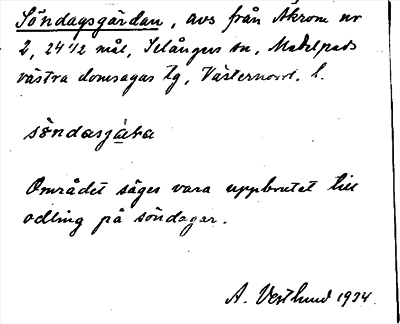 Söndagsgärdan, avs från Åkrom nr
2, 24 1/2 mål, Selångers sn, Medelpads
västra domsagas tg, Västernorrl. l.
söndasgāṛa
Området säges vara uppbrutet till
odling på söndagar.
A. Vestlund 1934